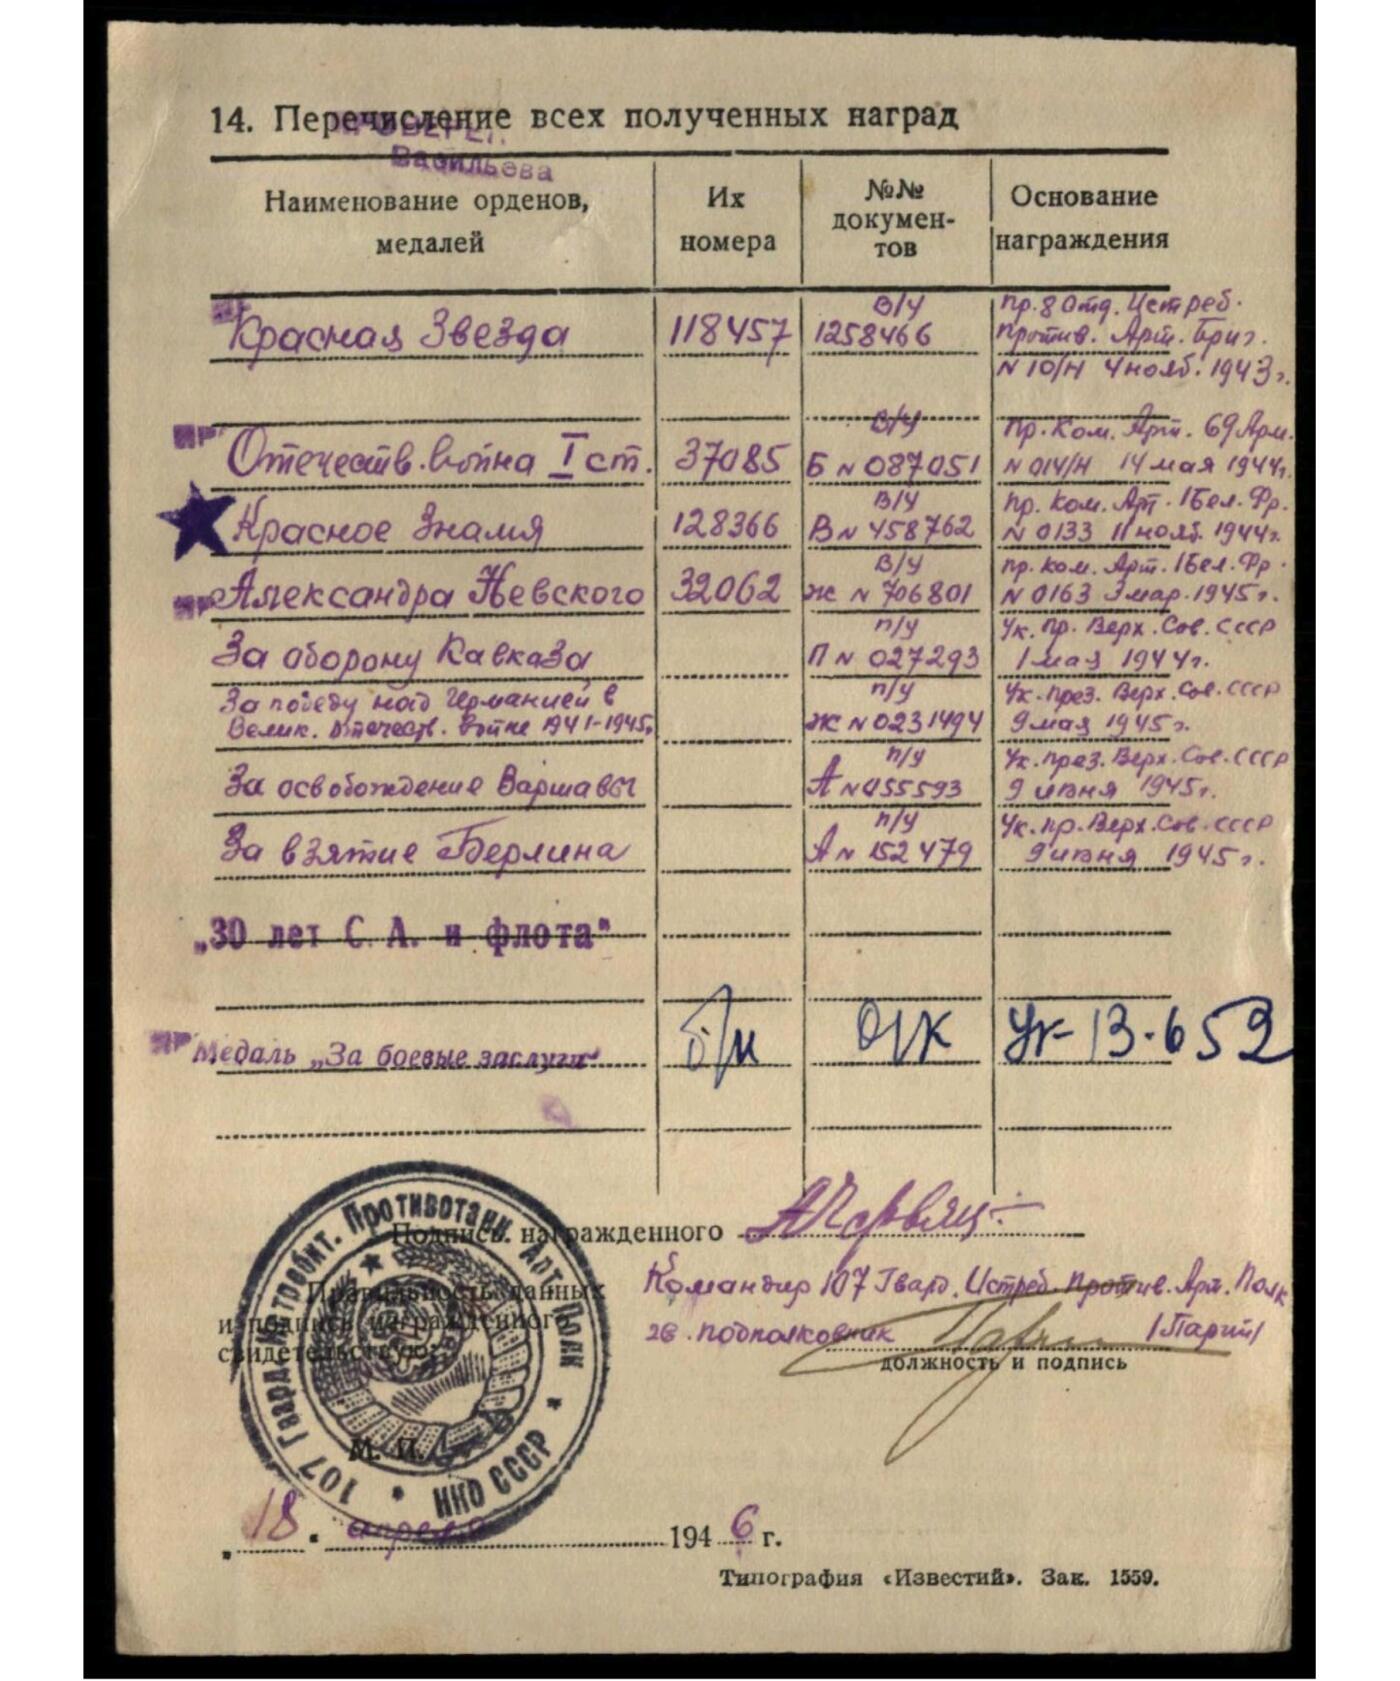 14. Перечисление всех полученных наград
Васильева
Наименование орденов, медалей
Их номера
№№ докумен-
тов
Основание награждения
Красная Звезда 118457 в/у 1258466 Пр. 8 Отд. Истреб.
Против. Арт. Бриг.
N 10/Н 4 нояб. 1943 г.
Отечеств. война I ст. 37085 в/у Б N 087051 Пр. Ком. Арт. 69 Арм.
N 014/Н 14 мая 1944 г.
Красное Знамя 128366 в/у В N 458762 Пр. Ком. Арт. 1 Бел. Фр.
N 0133 11 нояб. 1944 г.
Александра Невского 32062 в/у Ж N 706801 Пр. Ком. Арт. 1 Бел. Фр.
N 0163 3 мар. 1945 г.
За оборону Кавказа п/у П N 027293 Ук. Пр. Верх. Сов. СССР
1 мая 1944 г.
За победу над Германией в
Велик. Отечеств. войне 1941-1945 г. п/у Ж N 0231494 Ук. През. Верх. Сов. СССР
9 мая 1945 г.
За освобождение Варшавы п/у А N 055593 Ук. През. Верх. Сов. СССР
9 июня 1945 г.
За взятие Берлина п/у А N 152479 Ук. Пр. Верх. Сов. СССР
9 июня 1945 г.
„30 лет С. А. и флота"
Медаль „За боевые заслуги" б/н О/К Ук 13.6 52
Подпись награжденного
Командир 107 Гвард. Истреб. Против. Арт. Полк
гв. подполковник
должность и подпись
Правильность данных
и подписи награжденного
свидетельствую:
107 Гвард. Истребит. Противотанк. Арт. Полк НКО СССР
М. П.
„18" апреля 1946 г.
Типография «Известий». Зак. 1559.